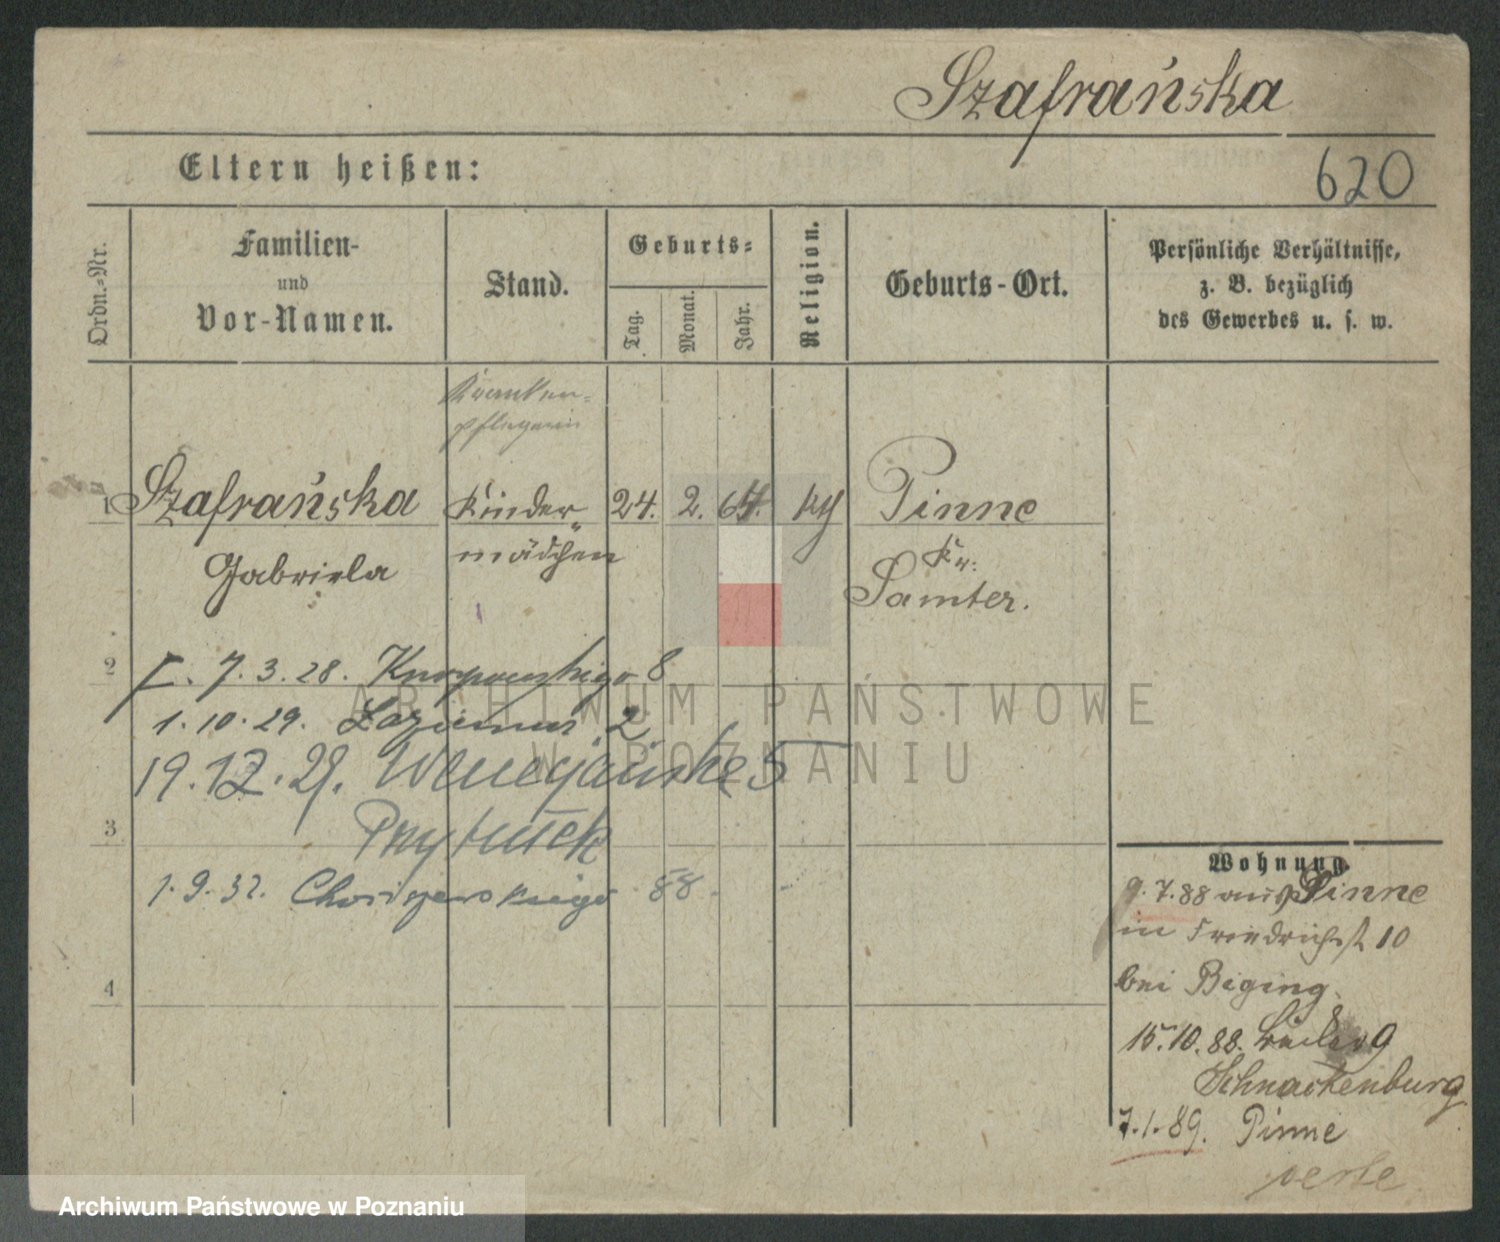 Szafrańska
620
Eltern heißen:
Ordn.-Nr.
Familien-
und
Vor-Namen.
Stand.
Geburts-
Tag.
Monat.
Jahr.
Religion.
Geburts-Ort.
Persönliche Verhältnisse,
z. B. bezüglich
des Gewerbes u. s. w.
Kranken-
pflegerin
1 Szafrańska Kinder 24. 2. 64. kg Pinne
Gabriela mädchen Kr.
Samter.
2
7.3.28. 8
1.10.29. 2
19.12.29. 5
3
1.9.32. 88.
4
Wohnung.
9.7.88 aus Pinne
in Friedrichst 10
bei Biging.
15.10.88.
Schnackenburg
7.1.89. Pinne
verte
ARCHIWUM PAŃSTWOWE
W POZNANIU
Archiwum Państwowe w Poznaniu